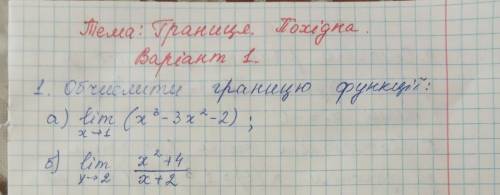 Тема: Границя. Похідна.
Варіант 1.
1. Обчислити границю функції:
а) lim x→1 (x³-3x²-2);
б) lim y→2 (x²+4)/(x+2)